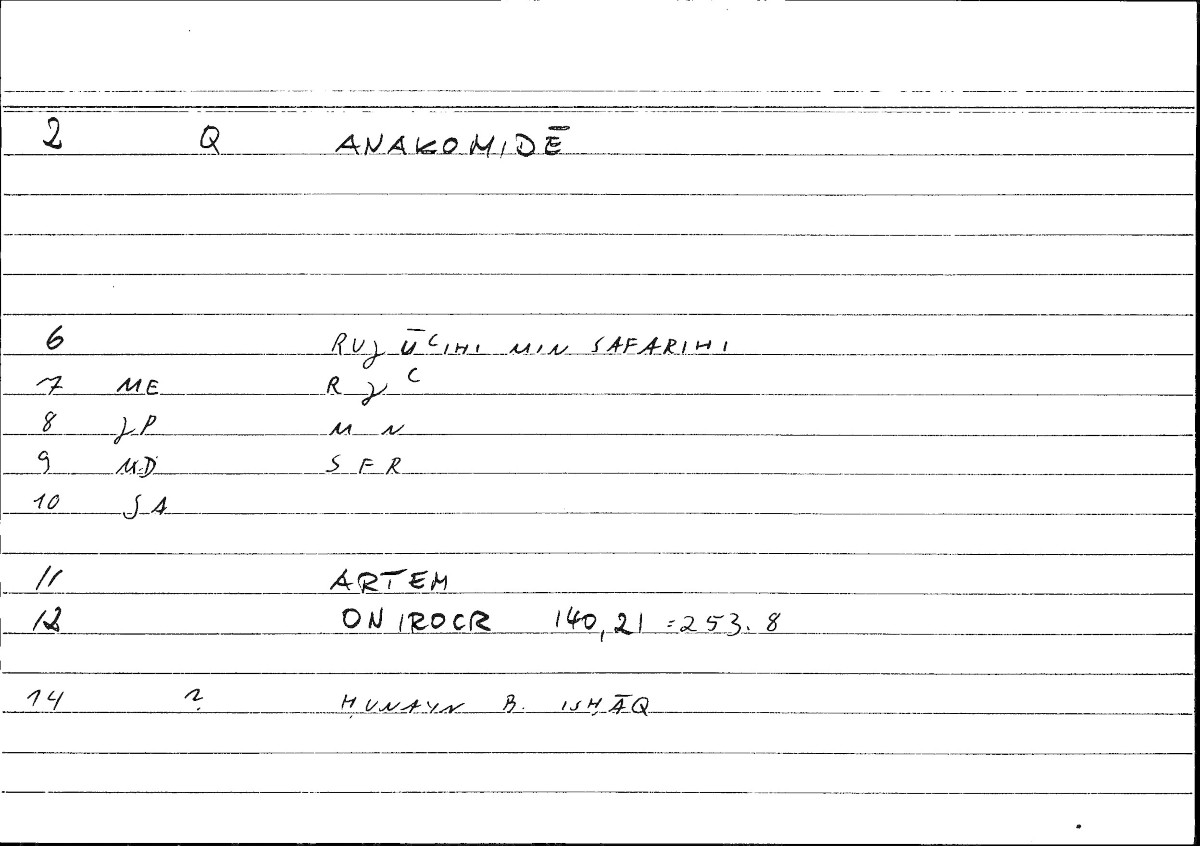 2 Q ANAKOMIDĒ
6 RUJŪʿIHI MIN SAFARIHI
7 ME R J ʿ
8 JP M N
9 MD S F R
10 SA
11 ARTEM
12 ONIROCR 140,21 =253.8
14 ? ḤUNAYN B. ISḤĀQ